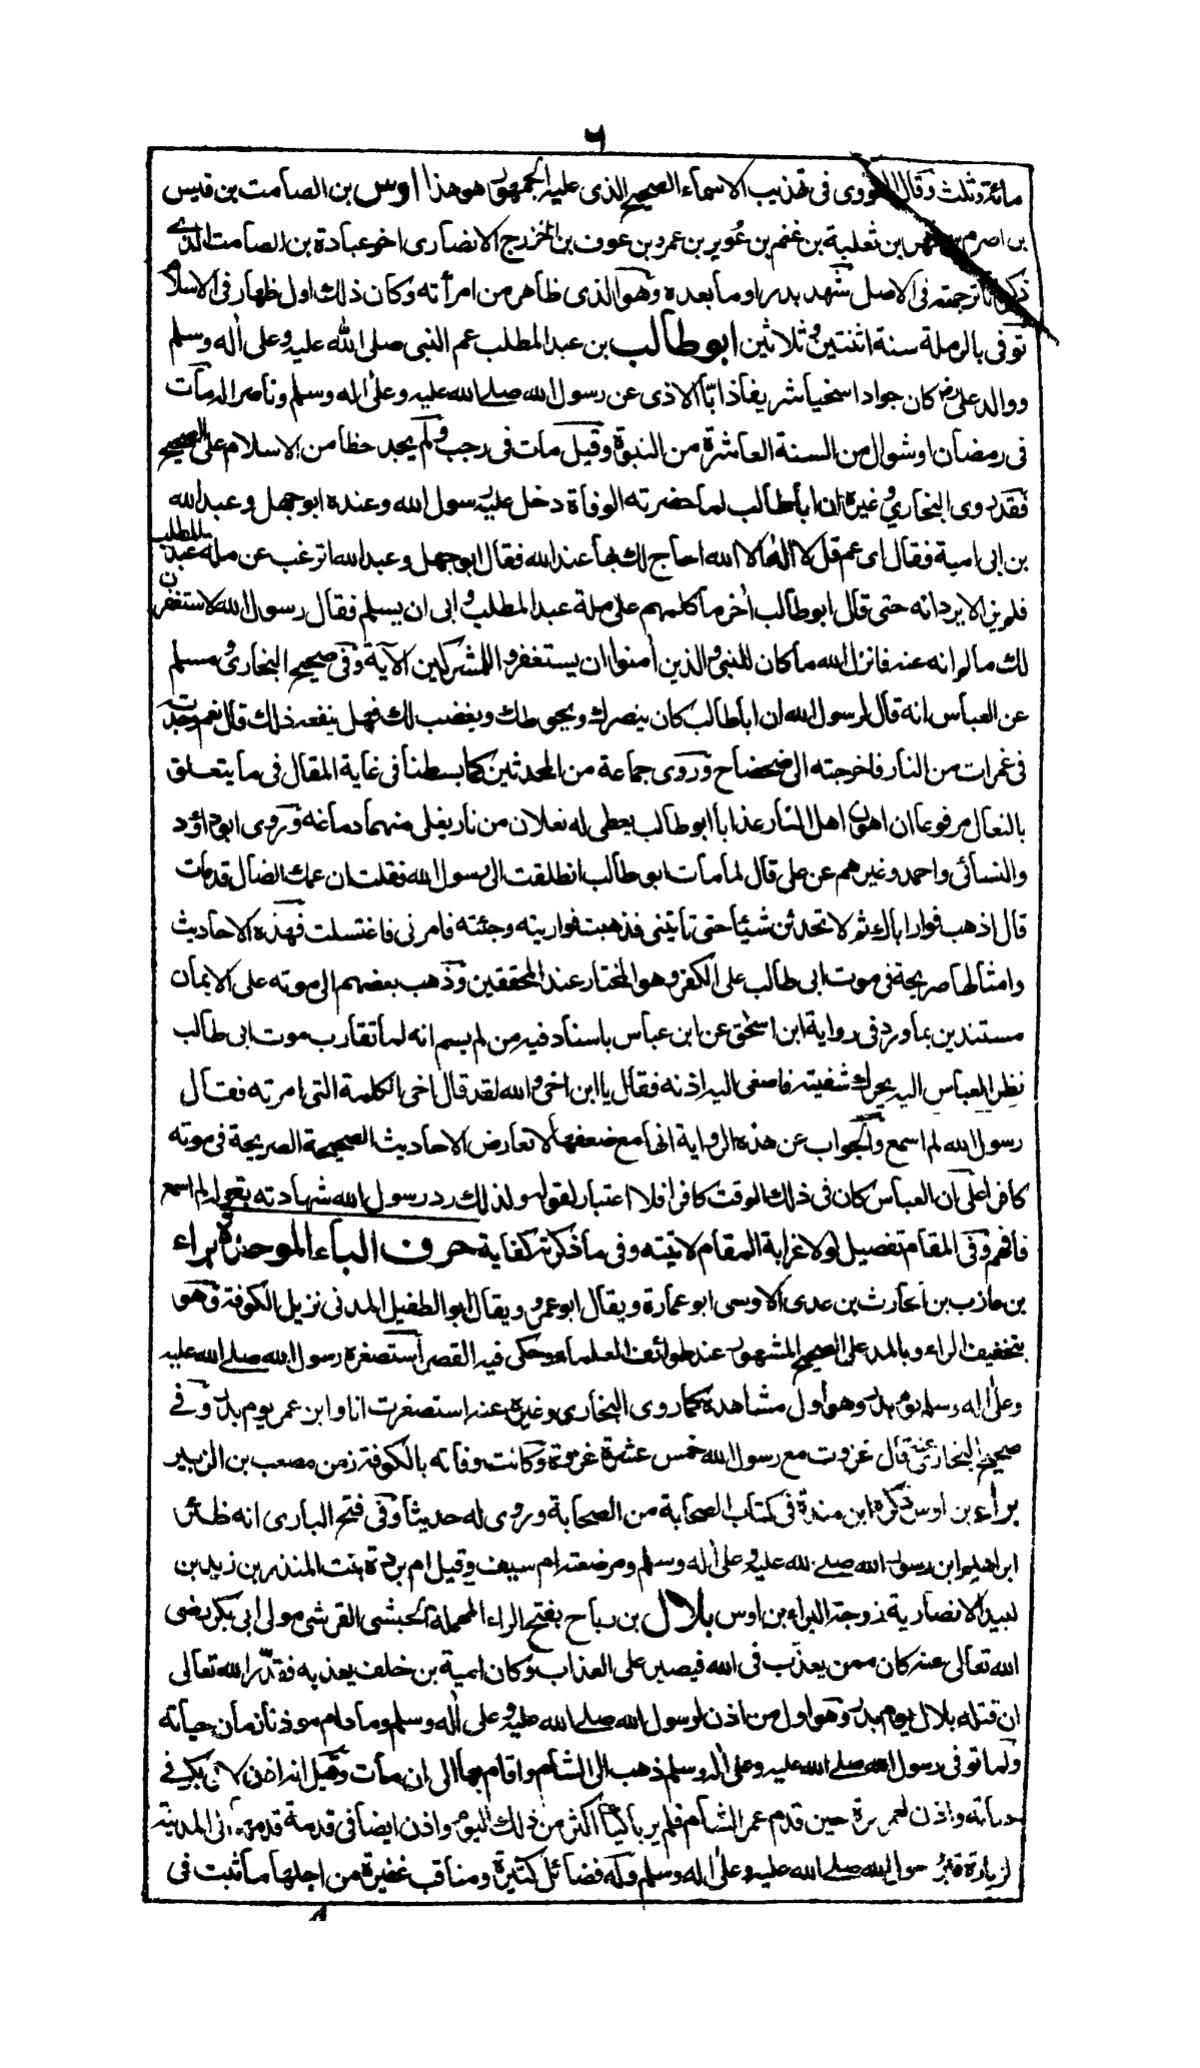 ٦
مائة وثلث وقال النووى فى تهذيب الاسماء الصحيح الذى عليه الجمهور هو هذا اوس بن الصامت بن قيس
بن اصرم بن فهر بن ثعلبة بن غنم بن عُوير بن عمرو بن عوف بن الخزرج الانصارى اخو عبادة بن الصامت الذے
ذكرنا ترجمته فى الاصل شهد بدرا وما بعده وهو الذى ظاهر من امرأته وكان ذلك اول ظهار فى الاسلام
توفى بالرملة سنة اثنتين وثلاثين ابو طالب بن عبد المطلب عم النبى صلى الله عليه وعلى اله وسلم
ووالد على رض كان جوادا سخيا شريفا ذابّا الاذى عن رسول الله صلے الله عليه وعلى اله وسلم وناصر اله مات
فى رمضان او شوال من السنة العاشرة من النبوة وقيل مات فى رجب ولم يجد حظا من الاسلام على الصحيح
فقد روى البخارى وغيره ان ابا طالب لما حضرته الوفاة دخل عليه رسول الله وعنده ابو جهل وعبد الله
بن ابى امية فقال اى عم قل لا اله الا الله احاج لك بها عند الله فقال ابو جهل وعبد الله اترغب عن ملة عبد المطلب
فلم يزالا يردانه حتى قال ابو طالب اخر ما كلمهم على ملة عبد المطلب وابى ان يسلم فقال رسول الله لاستغفرن
لك ما لم انه عنه فانزل الله ما كان للنبى والذين امنوا ان يستغفروا للمشركين الآية وفى صحيح البخارى ومسلم
عن العباس انه قال لرسول الله ان ابا طالب كان ينصرك ويحوطك ويغضب لك فهل ينفعه ذلك قال نعم وجدت
فى غمرات من النار فاخرجته الى ضحضاح وروى جماعة من المحدثين كما بسطنا فى غاية المقال فى ما يتعلق
بالنعال مرفوعا ان اهون اهل النار عذابا ابو طالب يعطى له نعلان من نار يغلى منهما دماغه وروى ابو داؤد
والنسائى واحمد وغيرهم عن على قال لما مات ابو طالب انطلقت الى رسول الله فقلت ان عمك الضال قد مات
قال اذهب فوار اباك ثم لا تحدثن شيئا حتى تاتينى فذهبت فواريته وجئته فامرنى فاغتسلت فهذه الاحاديث
وامثالها صريحة فى موت ابى طالب على الكفر وهو المختار عند المحققين وذهب بعضهم الى موته على الايمان
مستندين بما ورد فى رواية ابن اسحٰق عن ابن عباس باسناد فيه من لم يسم انه لما تقارب موت ابى طالب
نظر العباس اليه يحرك شفيته فاصغى اليه اذنه فقال يا ابن اخى والله لقد قال اخى الكلمة التى امرته فقال
رسول الله لم اسمع والجواب عن هذه الرواية انها مع ضعفها لا تعارض الاحاديث الصحيحة الصريحة فى موته
كافرا على ان العباس كان فى ذلك الوقت كافرا فلا اعتبار لقوله ولذلك رد رسول الله شهادته بقوله لم اسمع
فافهم وفى المقام تفصيل لولا غرابة المقام لاتيته وفى ما ذكرته كفاية حرف الباء الموحدة براء
بن عازب بن الحارث بن عدى الاوسى ابو عمارة ويقال ابو عمرو ويقال ابو الطفيل المدنى نزيل الكوفة وهو
بتخفيف الراء وبالمد على الصحيح المشهور عند طوائف العلماء وحكى فيه القصر استصغره رسول الله صلے الله عليه
وعلى اله وسلم يوم بدر وهو اول مشاهده كما روى البخارى وغيره عنه استصغرت انا وابن عمر يوم بدر وفے
صحيح البخارى عنه قال غزوت مع رسول الله خمس عشرة غزوة وكانت وفاته بالكوفة زمن مصعب بن الزبير
براء بن اوس ذكره ابن مندة فى كتاب الصحابة من الصحابة وروى له حديثا وفى فتح البارى انه ظئر
ابراهيم ابن رسول الله صلے الله عليه وعلى اله وسلم ومرضعته ام سيف وقيل ام بردة بنت المنذر بن زيد بن
لبيد الانصارية زوجة البراء بن اوس بلال بن رباح بفتح الراء المهملة الحبشى القرشى مولى ابى بكر رضى
الله تعالى عنه كان ممن يعذب فى الله فيصبر على العذاب وكان امية بن خلف يعذبه فقدّر الله تعالى
ان قتله بلال يوم بدر وهو اول من اذن لرسول الله صلے الله عليه وعلى اله وسلم وما دام موذنا زمان حياته
ولما توفى رسول الله صلے الله عليه وعلى اله وسلم ذهب الى الشام واقام بها الى ان مات وقيل انه اذن لابى بكر فے
حياته واذن لعمر مرة حين قدم عمر الشام فلم ير باكيا اكثر من ذلك اليوم واذن ايضا فى قدمة قدمها الى المدينة
لزيارة قبر رسول الله صلے الله عليه وعلى اله وسلم وله فضائل كثيرة ومناقب غفيرة من اجلها ما ثبت فى